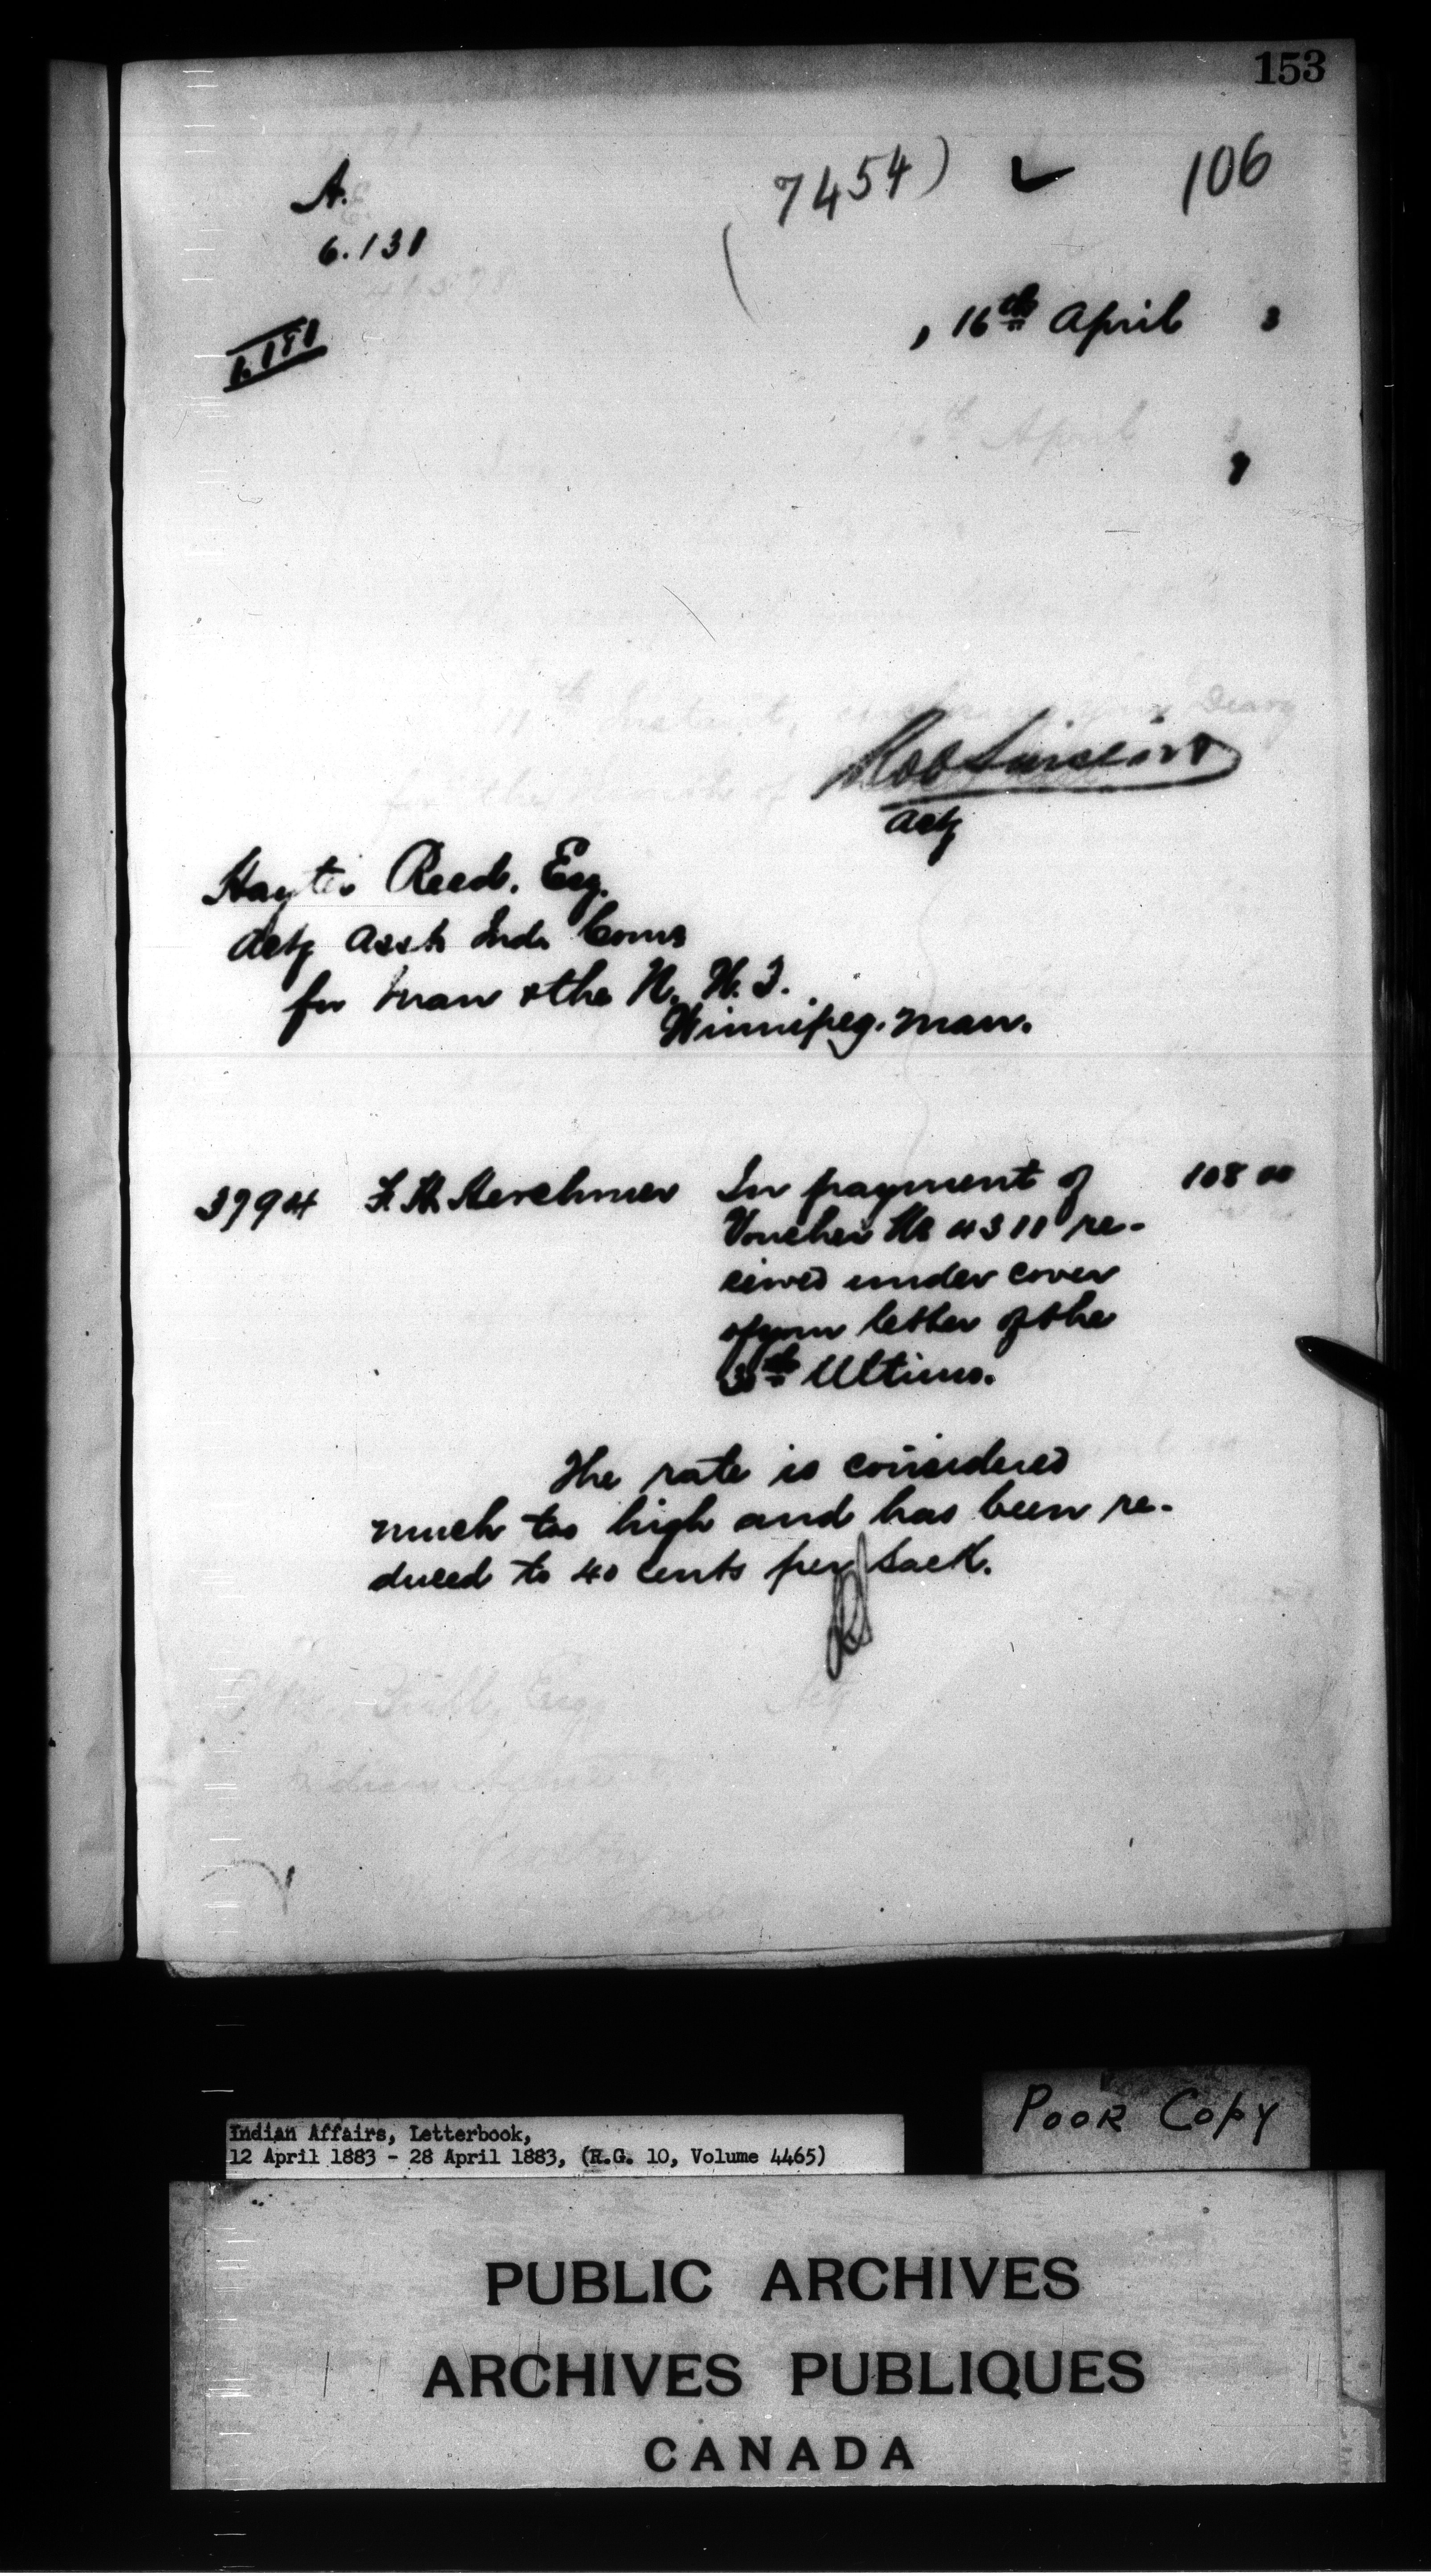 153
A.
6.131
(7454) 106
, 16th April 3
Rob Sinclair
Actg
Hayter Reed. Esq.
Actg Asst. Ind. Coms
for Man & the N. W. T.
Winnipeg. Man.
3994 F. H. Herchmer In payment of 108 00
Voucher No 4311 re-
ceived under cover
of your letter of the
Ultimo.
The rate is considered
much too high and has been re-
duced to 40 cents per sack.
RS
Indian Affairs, Letterbook,
12 April 1883 - 28 April 1883, (R.G. 10, Volume 4465)
POOR COPY
PUBLIC ARCHIVES
ARCHIVES PUBLIQUES
CANADA